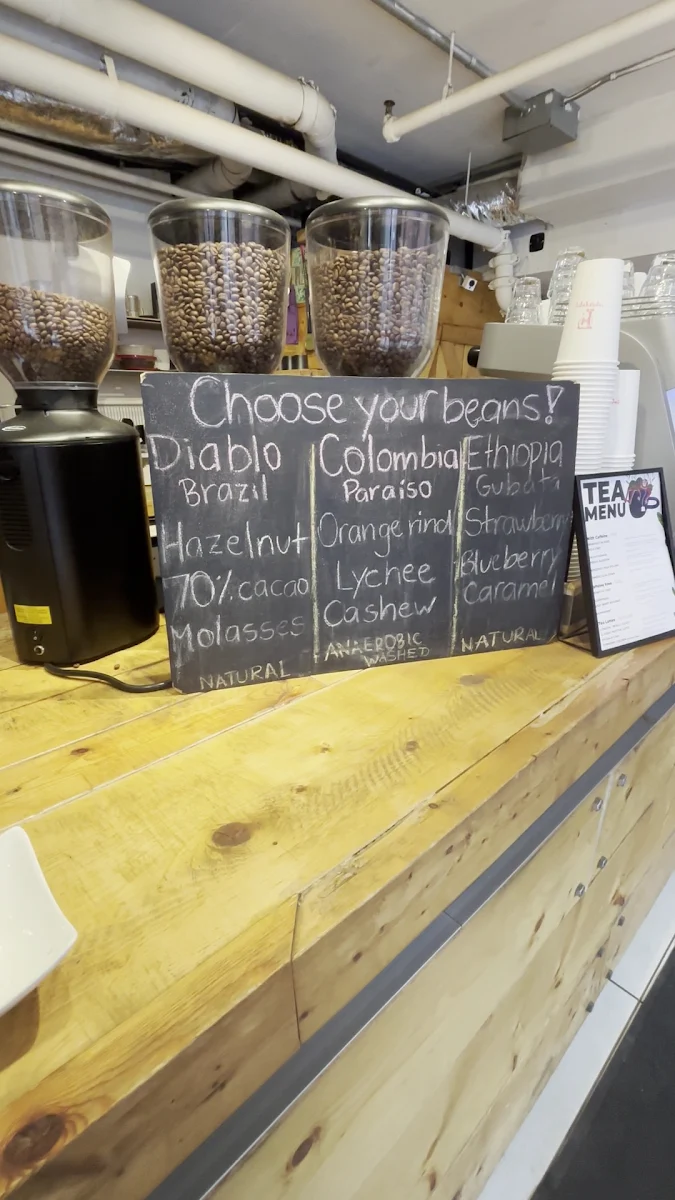 Choose your beans!
Diablo
Brazil
Hazelnut
70% cacao
Molasses
NATURAL
Colombia
Paraiso
Orange rind
Lychee
Cashew
ANAEROBIC
WASHED
Ethiopia
Strawberry
Blueberry
Caramel
NATURAL
TEA
MENU